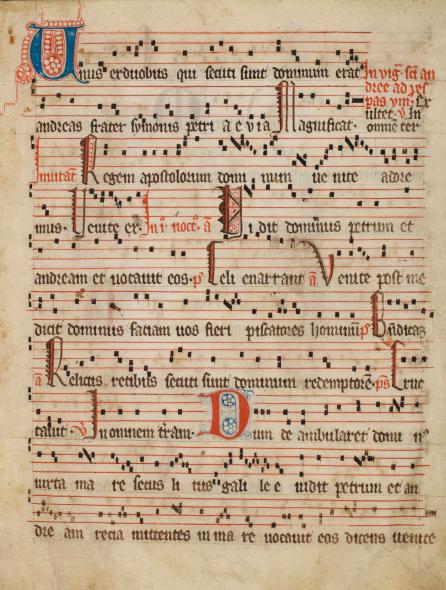 Unus ex duobus qui secuti sunt dominum erat In vig. sci an
dree ad ves
pas ymn. Ex
ultet. V. In
andreas frater symonis petri a e v i a Magnificat. omnem ter
Invitat Regem apostolorum domi num ve nite adore
mus. Venite ex. In i. noct. a Vidit dominus petrum et
andream et vocavit eos. p Celi enarrant a Venite post me
dicit dominus faciam vos fieri piscatores hominum p Benedicam
a Relictis retibus secuti sunt dominum redemptorem ps Eruc
tavit. V In omnem terram. Dum de ambularet domi n
iuxta ma re secus li tus gali le e vidit petrum et an
dre am recia mittentes in ma re vocavit eos dicens venite